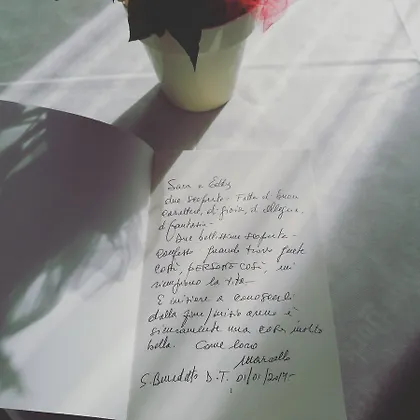 Sara e Eddy
due scoperte. Fatte di buon
carattere, di gioia, di allegria,
di fantasia.
Due bellissime scoperte.
confesso quando trovo gente
così, PERSONE COSÌ, mi
riempiono la vita.
E iniziare a conoscerli
dalla fine/inizio anno è
sicuramente una cosa molto
bella. Come loro
Marcello
S. Benedetto D.T. 01/01/2019